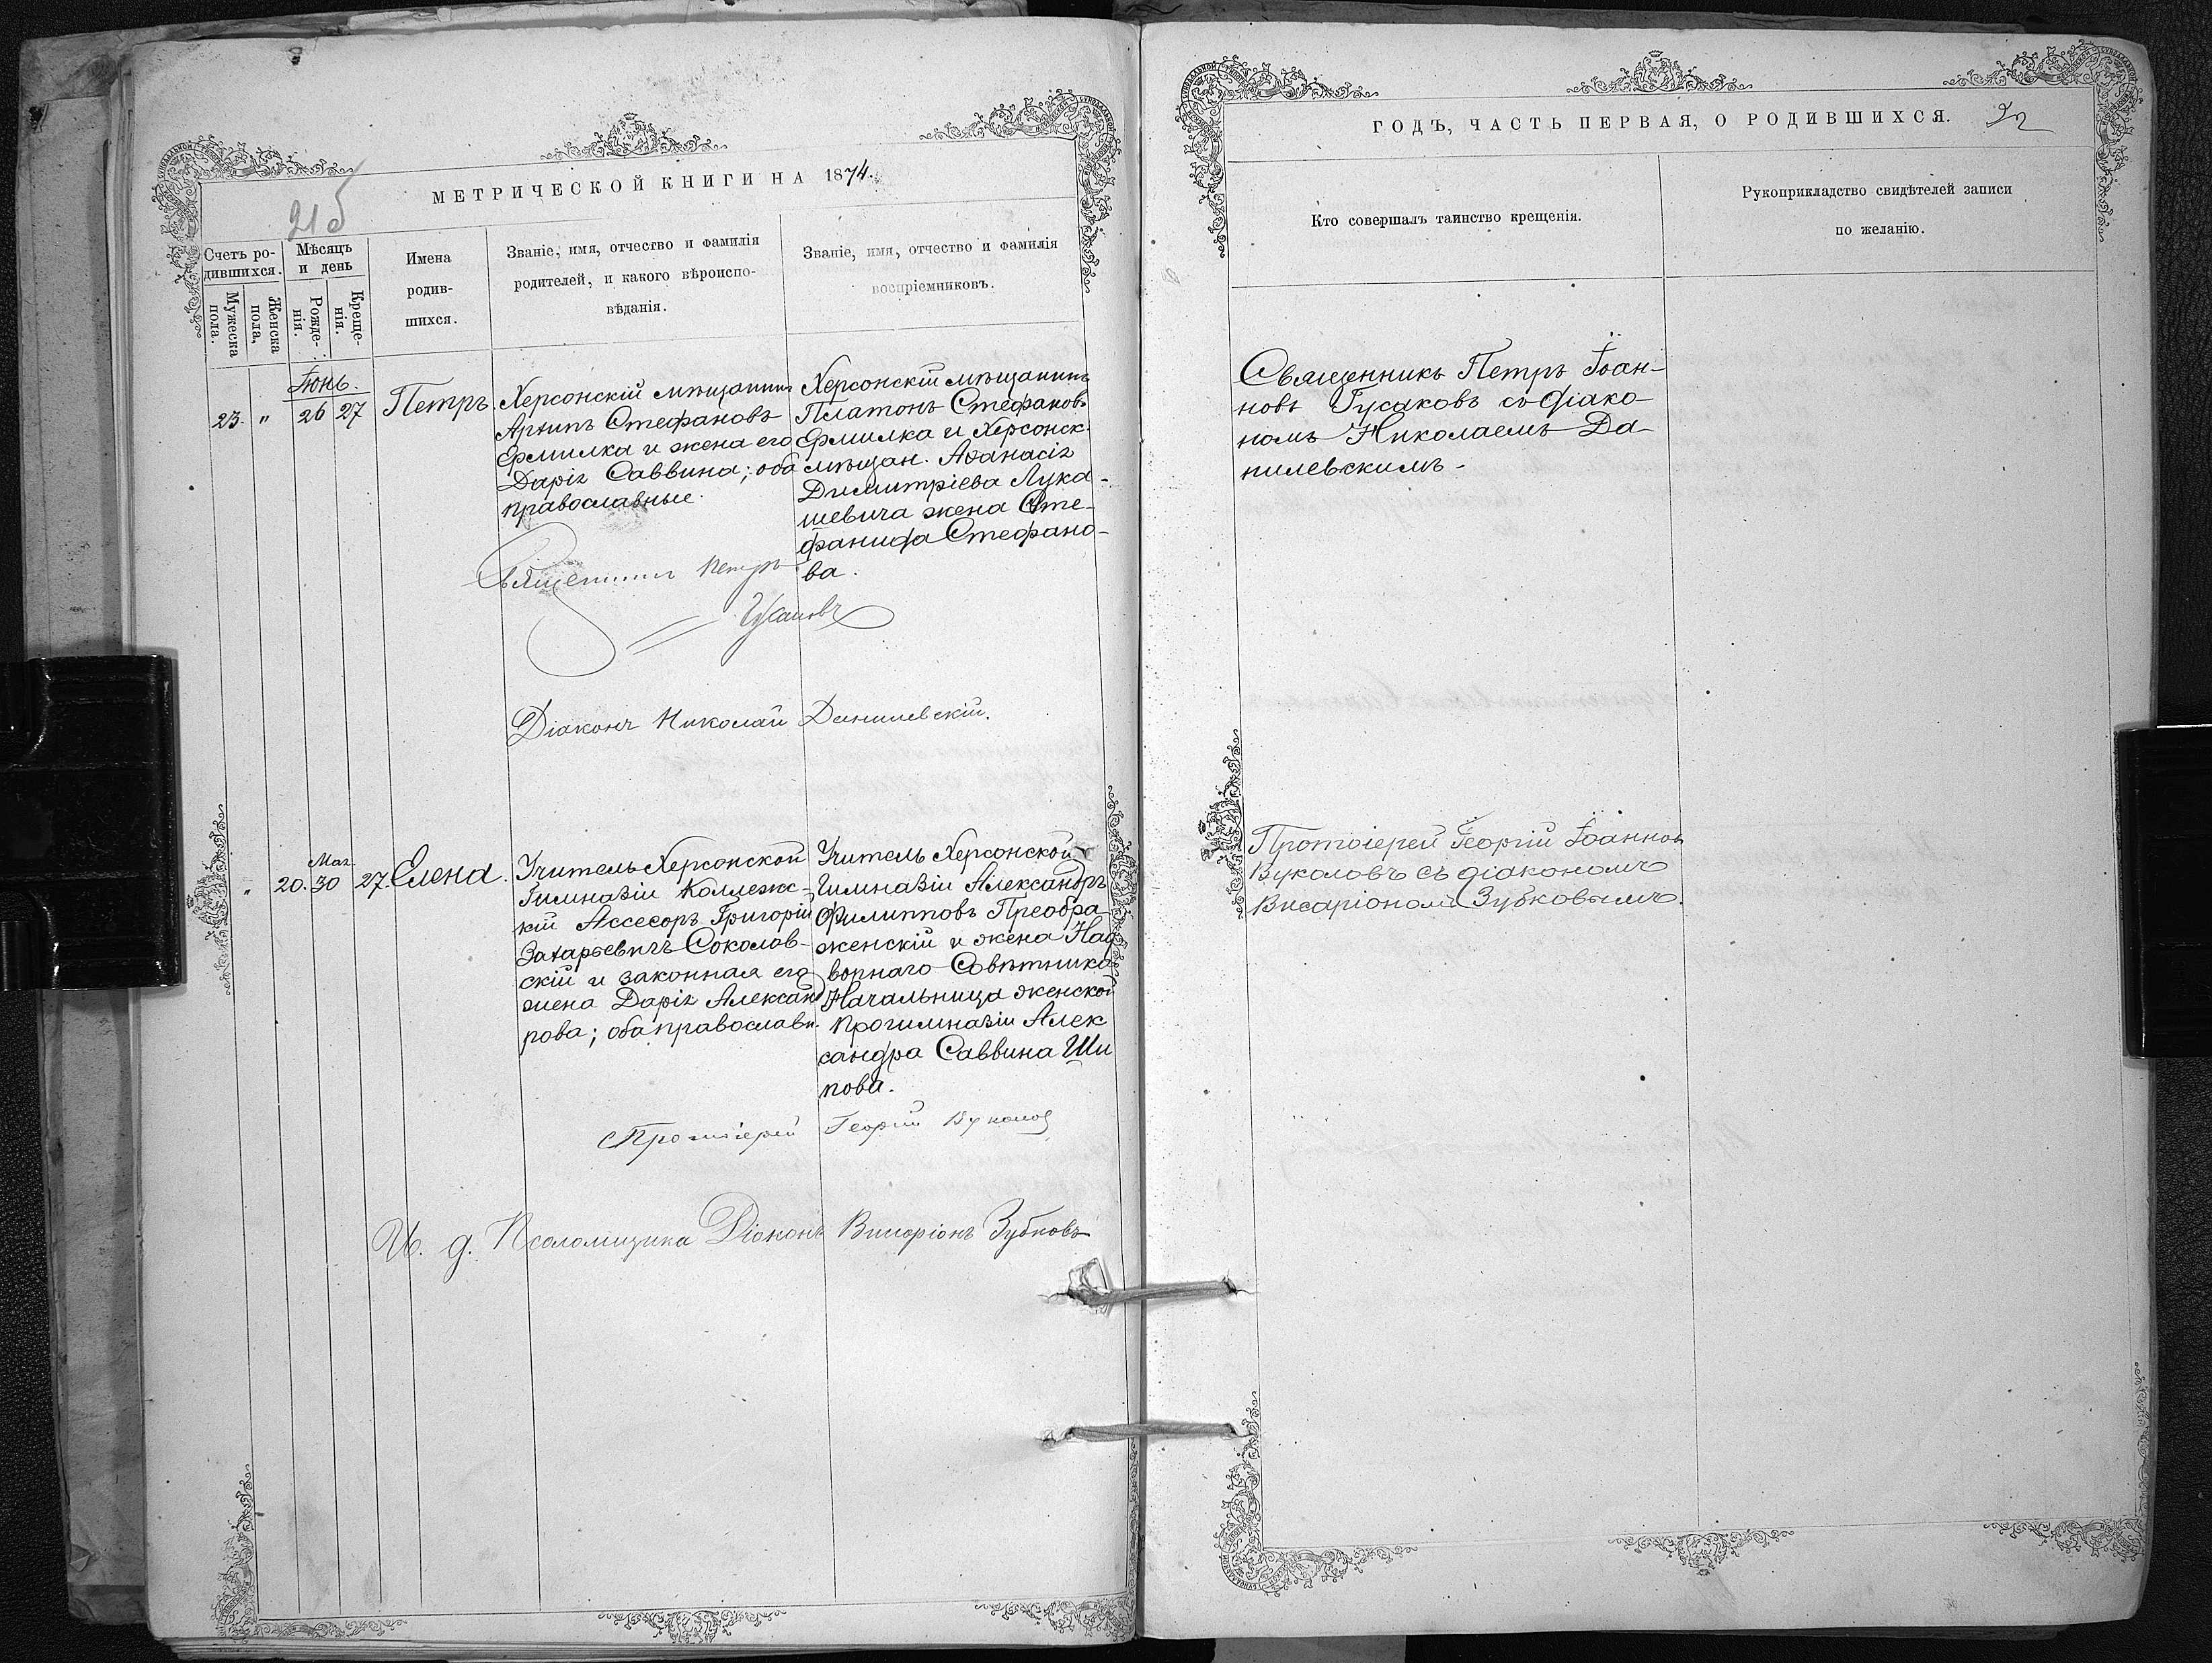 МЕТРИЧЕСКОЙ КНИГИ НА 1874.
21б
Счетъ ро-
дившихся.
Мужеска
пола.
Женска
пола,
Мѣсяцъ
и день
Рожде-
нія.
Креще-
нія.
Имена
родив-
шихся.
Званіе, имя, отчество и фамилія
родителей, и какого вѣроиспо-
вѣданія.
Званіе, имя, отчество и фамилія
воспріемниковъ.
Іюнь.
23. " 26 27 Петръ.
Херсонскій мѣщанинъ
Архипъ Стефановъ
Ермилка и жена его
Дарія Саввина; оба
православные.
Херсонскій мѣщанинъ
Платонъ Стефановъ
Ермилка и Херсонск.
мѣщан. Аѳанасія
Димитріева Лука-
шевича жена Сте-
фанида Стефано-
ва.
Священникъ Петръ
Гусаковъ
Діаконъ Николай Данилевскій.
" 20. Мая 30 27. Елена.
Учитель Херсонской
Гимназіи Коллежс-
кій Ассесоръ Григорій
Захарьевичъ Соколов-
скій и законная его
жена Дарія Александ
рова; оба православн.
Учитель Херсонской
Гимназіи Александръ
Филипповъ Преобра-
женскій и жена Над
ворнаго Совѣтника
Начальница женской
прогимназіи Алек
сандра Саввина Ши
пова.
Протоіерей Георгій Вуколов
И. д. Псаломщика Діаконъ Висаріонъ Зубковъ
ГОДЪ, ЧАСТЬ ПЕРВАЯ, О РОДИВШИХСЯ.
22
Кто совершалъ таинство крещенія.
Рукоприкладство свидѣтелей записи
по желанію.
Священникъ Петръ Іоан-
новъ Гусаковъ съ діако-
номъ Николаемъ Да-
нилевскимъ.
Протоіерей Георгій Іоаннов
Вуколовъ съ діакономъ
Висаріономъ Зубковымъ.